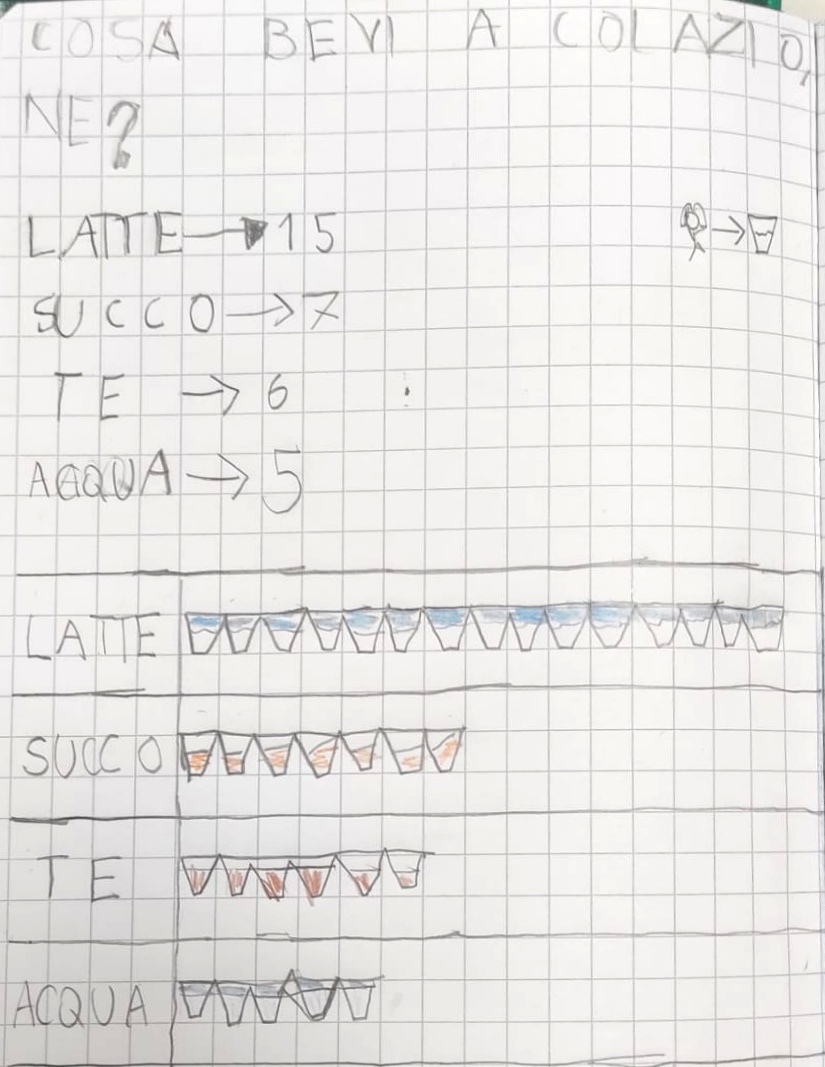 COSA BEVI A COLAZIO,
NE?
LATTE → 15
SUCCO → 7
TE → 6
ACQUA → 5
LATTE
SUCCO
TE
ACQUA